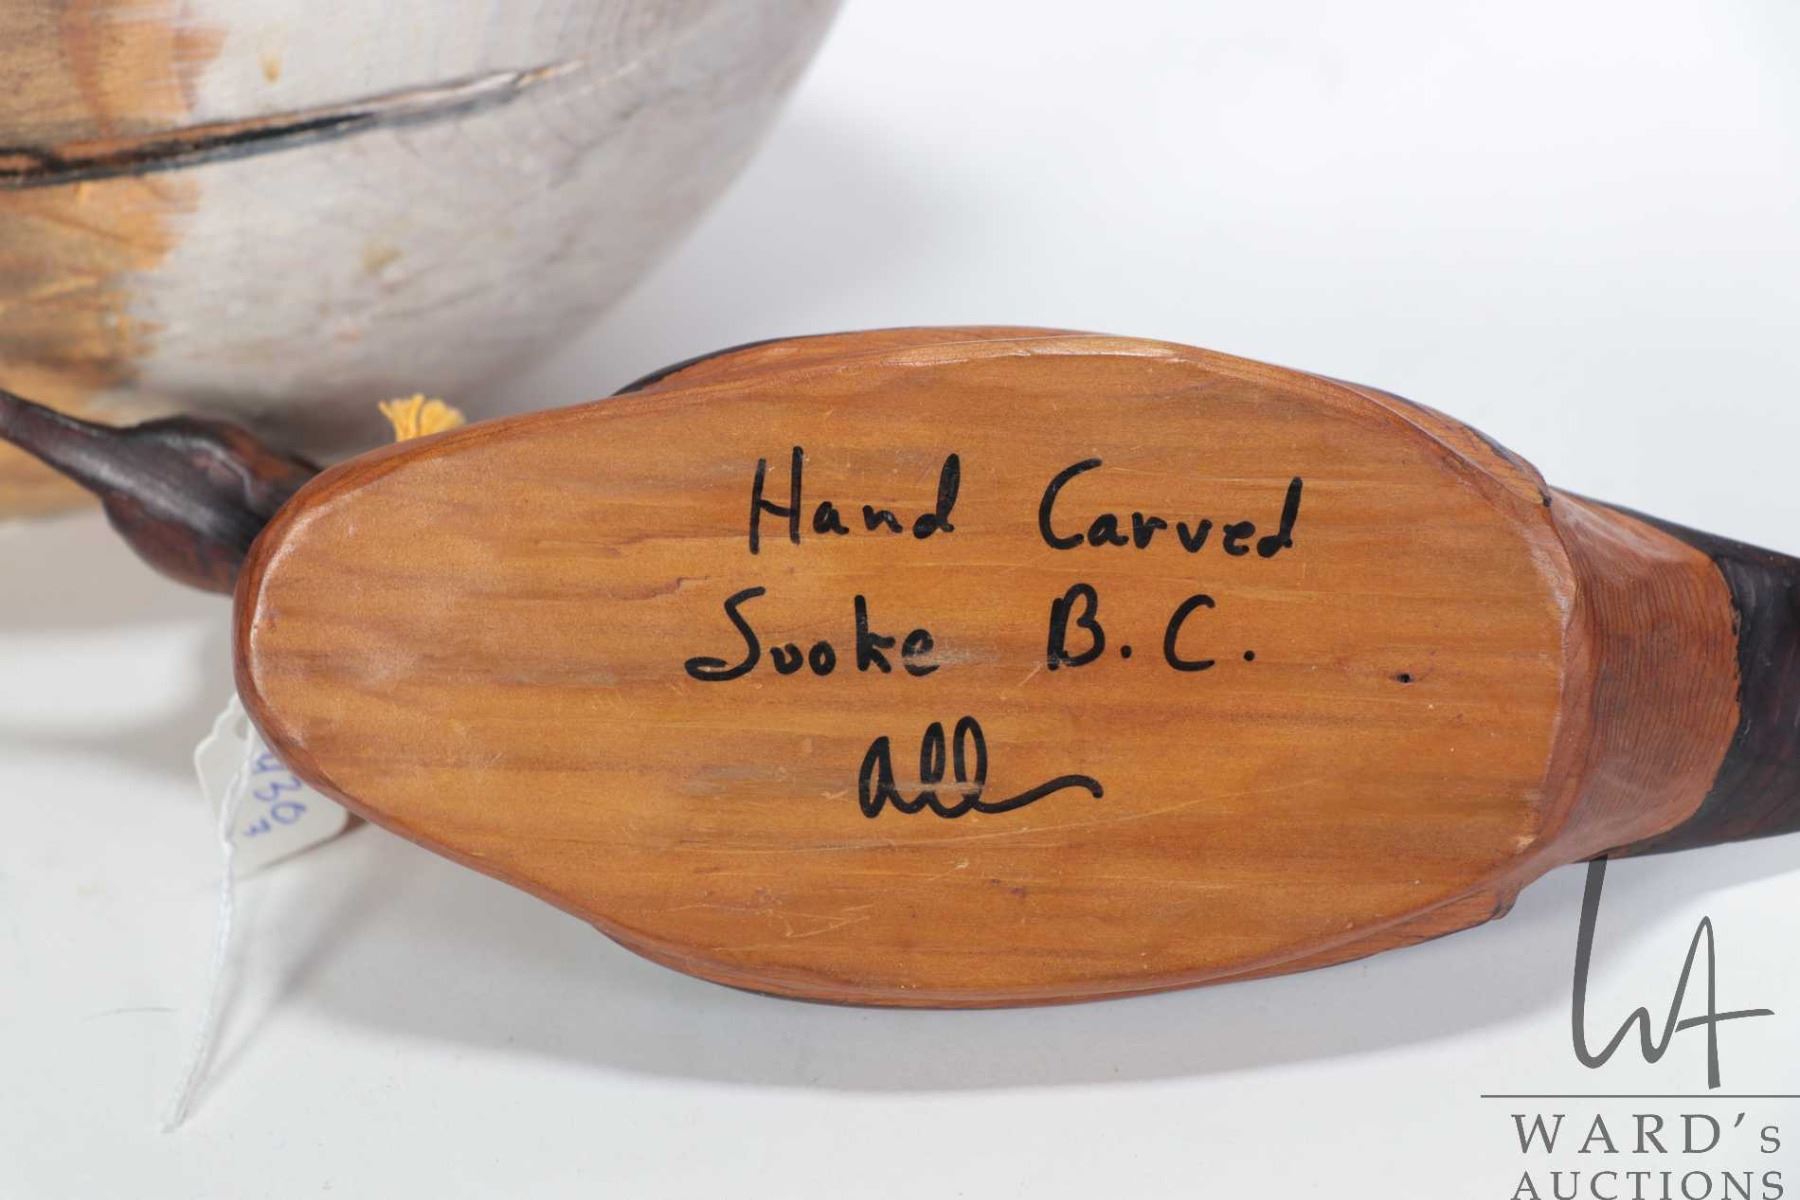 Hand Carved
Sooke B.C.
430
3
WA
WARD's
AUCTIONS